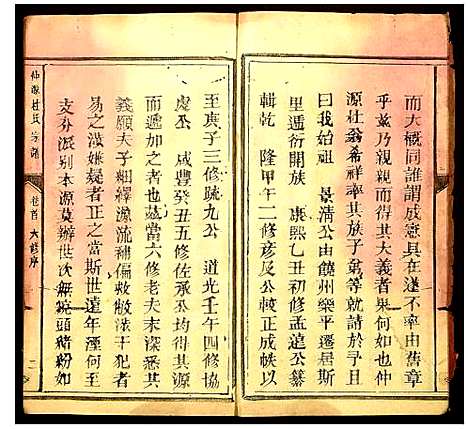 而大概同誰謂成憲具在遂不率由舊章
乎茲乃親親而得其大義者果何如也仲
源杜翁希祥率其族子弟等就請於予且
曰我始祖 景清公由饒州樂平遷居斯
里遞衍開族 康熙乙丑初修孟遠公纂
輯乾 隆甲午二修彥及公轉正成帙以
至庚子三修疏九公 道光壬午四修協
虞公 咸豐癸丑五修佐承公均得其源
而遞加之茲當六修老夫子末深悉其
義願夫子紬繹源流補偏救敝泼干犯者
易之涉嫌疑者正之當斯世遠年湮何至
支分派別本源莫辦世次無曉頭緒紛如
仲源杜氏宗譜
卷首 六修序
二